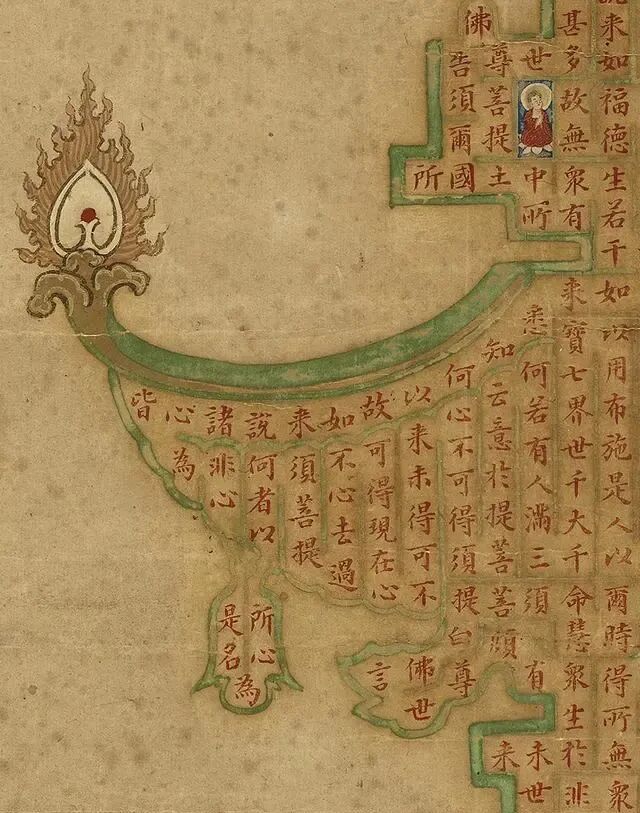 来如福德生若千如以用布施是人以爾時得所無衆
甚多故無衆有来寳七界世千大千命慧衆生於非
世中所悉何若有人滿三須有未世
佛尊菩提土知云意於提菩菩頗来
告須爾國何心不可得須提白尊
所以来未得可不佛世
故可得現在心言
如不心去過
来須菩提
説何者以所心
諸非心是名為
心為
皆